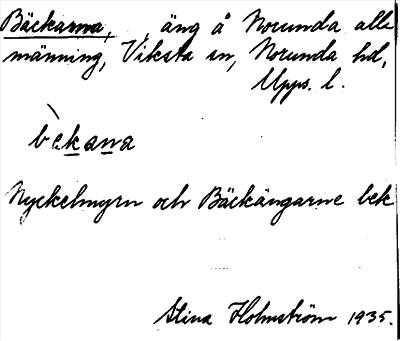 Bäckarna, , äng å Norunda alle
männing, Viksta sn, Norunda hd,
Upps. l.
bèkana
Nyckelmyrn och Bäckängarne bek
Stina Holmström 1935.